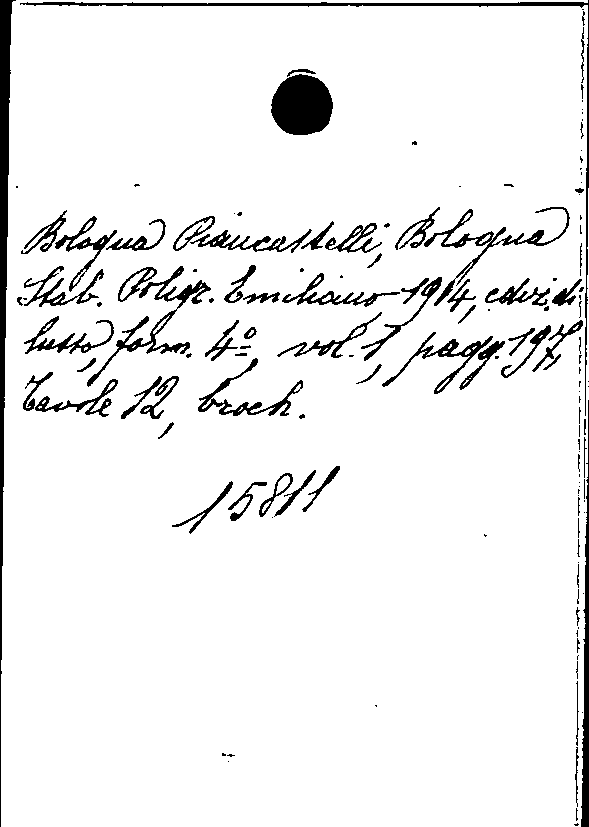 Bologna Piancastelli, Bologna
Stab. Poligr. Emiliano, 1914, ediz. di
lusso, form. 4º, vol. 1, pagg. 197,
tavole 12, broch.
15811